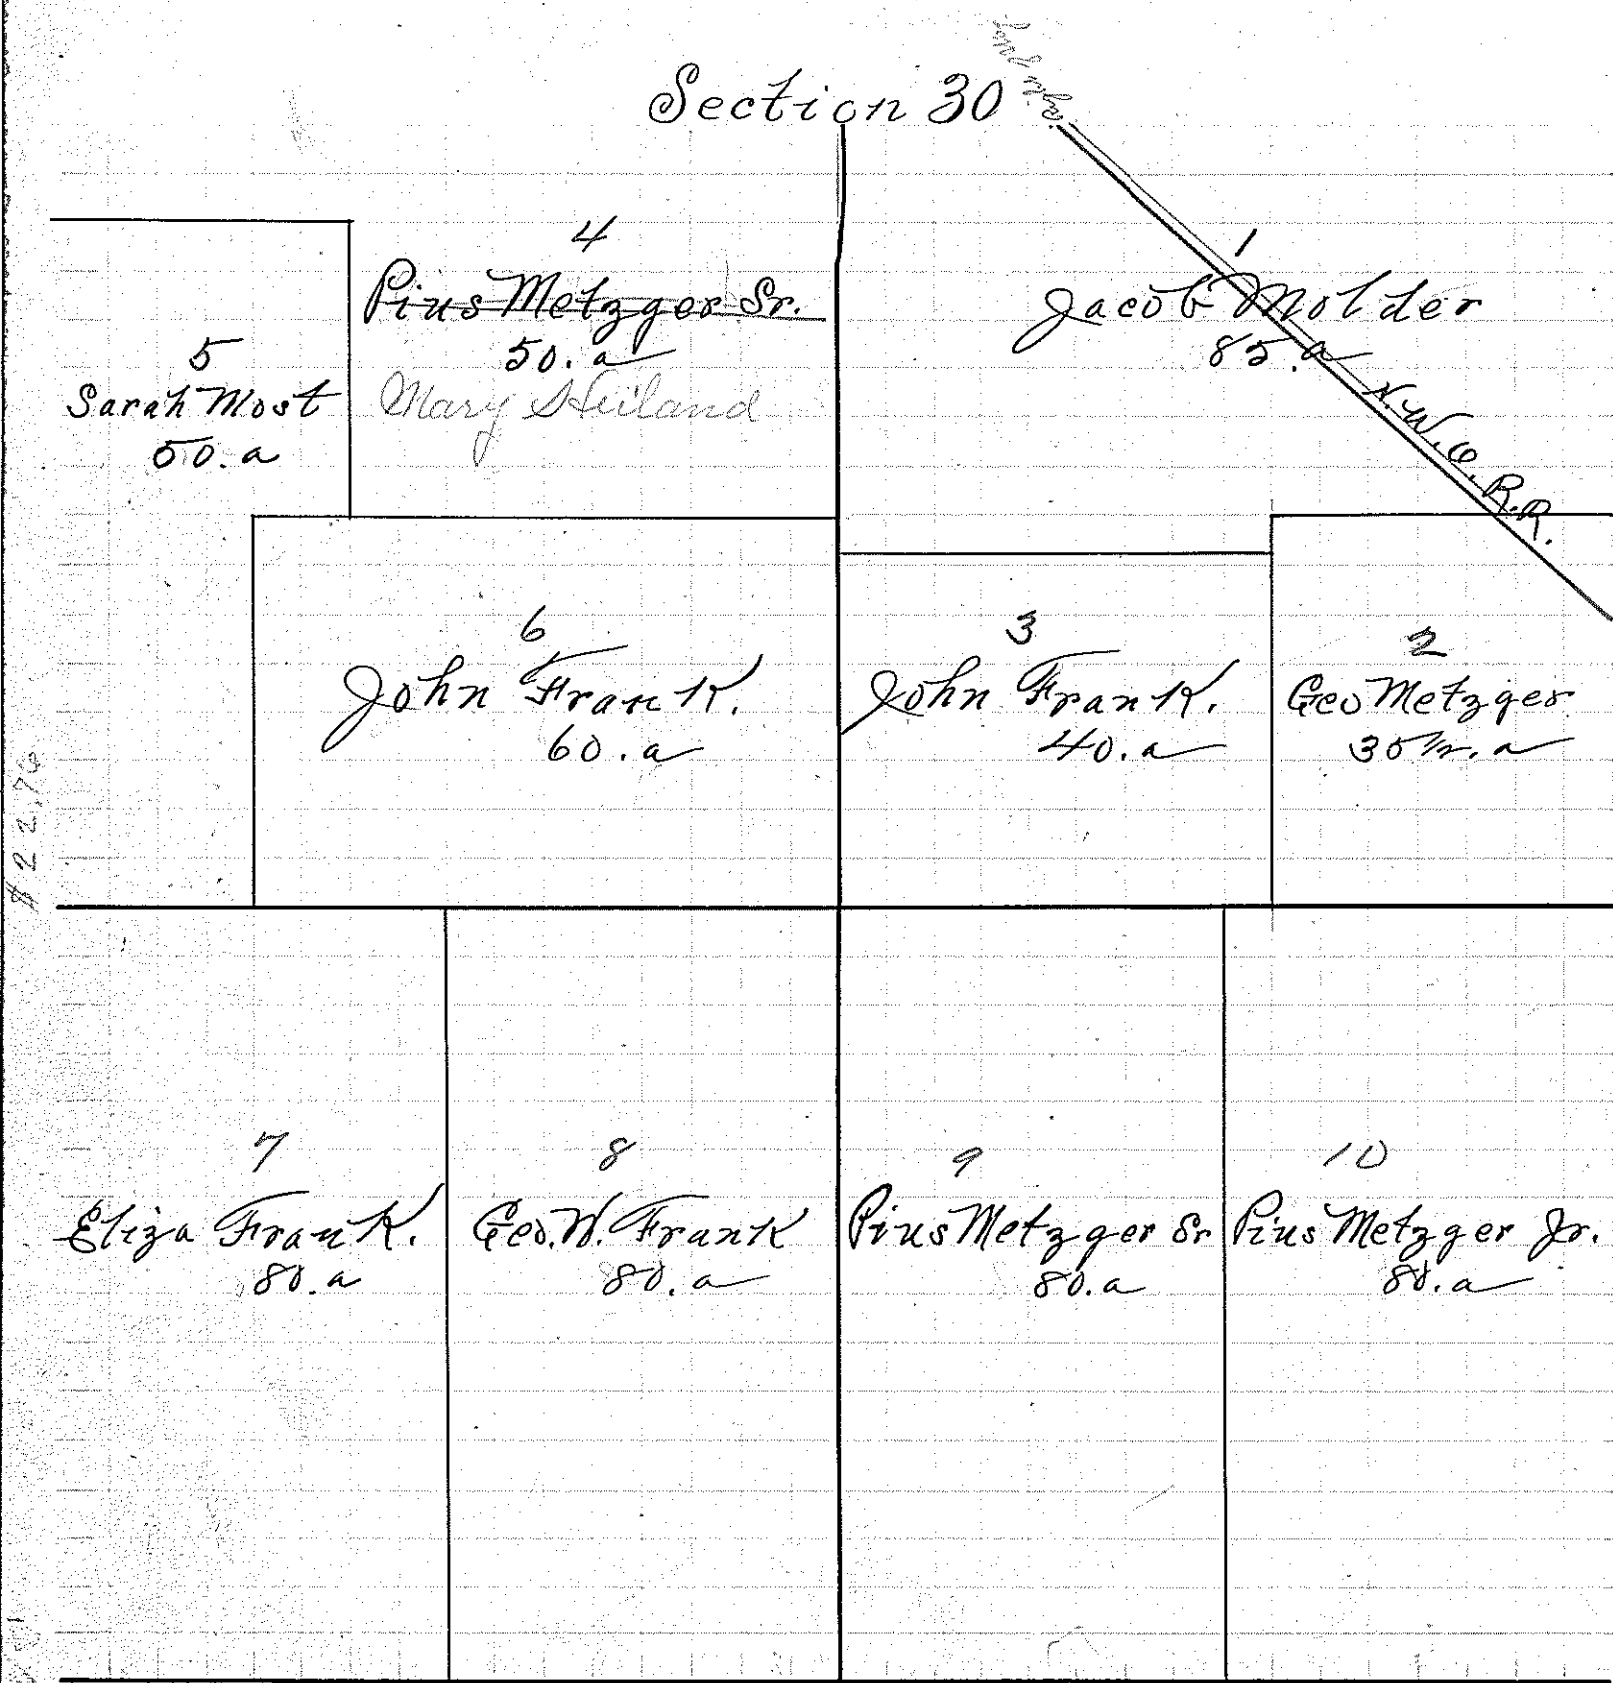 Section 30
4
Pius Metzger Sr.
50. a
Mary Heiland
1
Jacob Molder
85. a
N.W.O. R.R.
5
Sarah Most
50. a
6
John Frank.
60. a
3
John Frank.
40. a
2
Geo Metzger
35 1/2. a
7
Eliza Frank.
80. a
8
Geo. W. Frank
80. a
9
Pius Metzger Sr
80. a
10
Pius Metzger Jr.
80. a